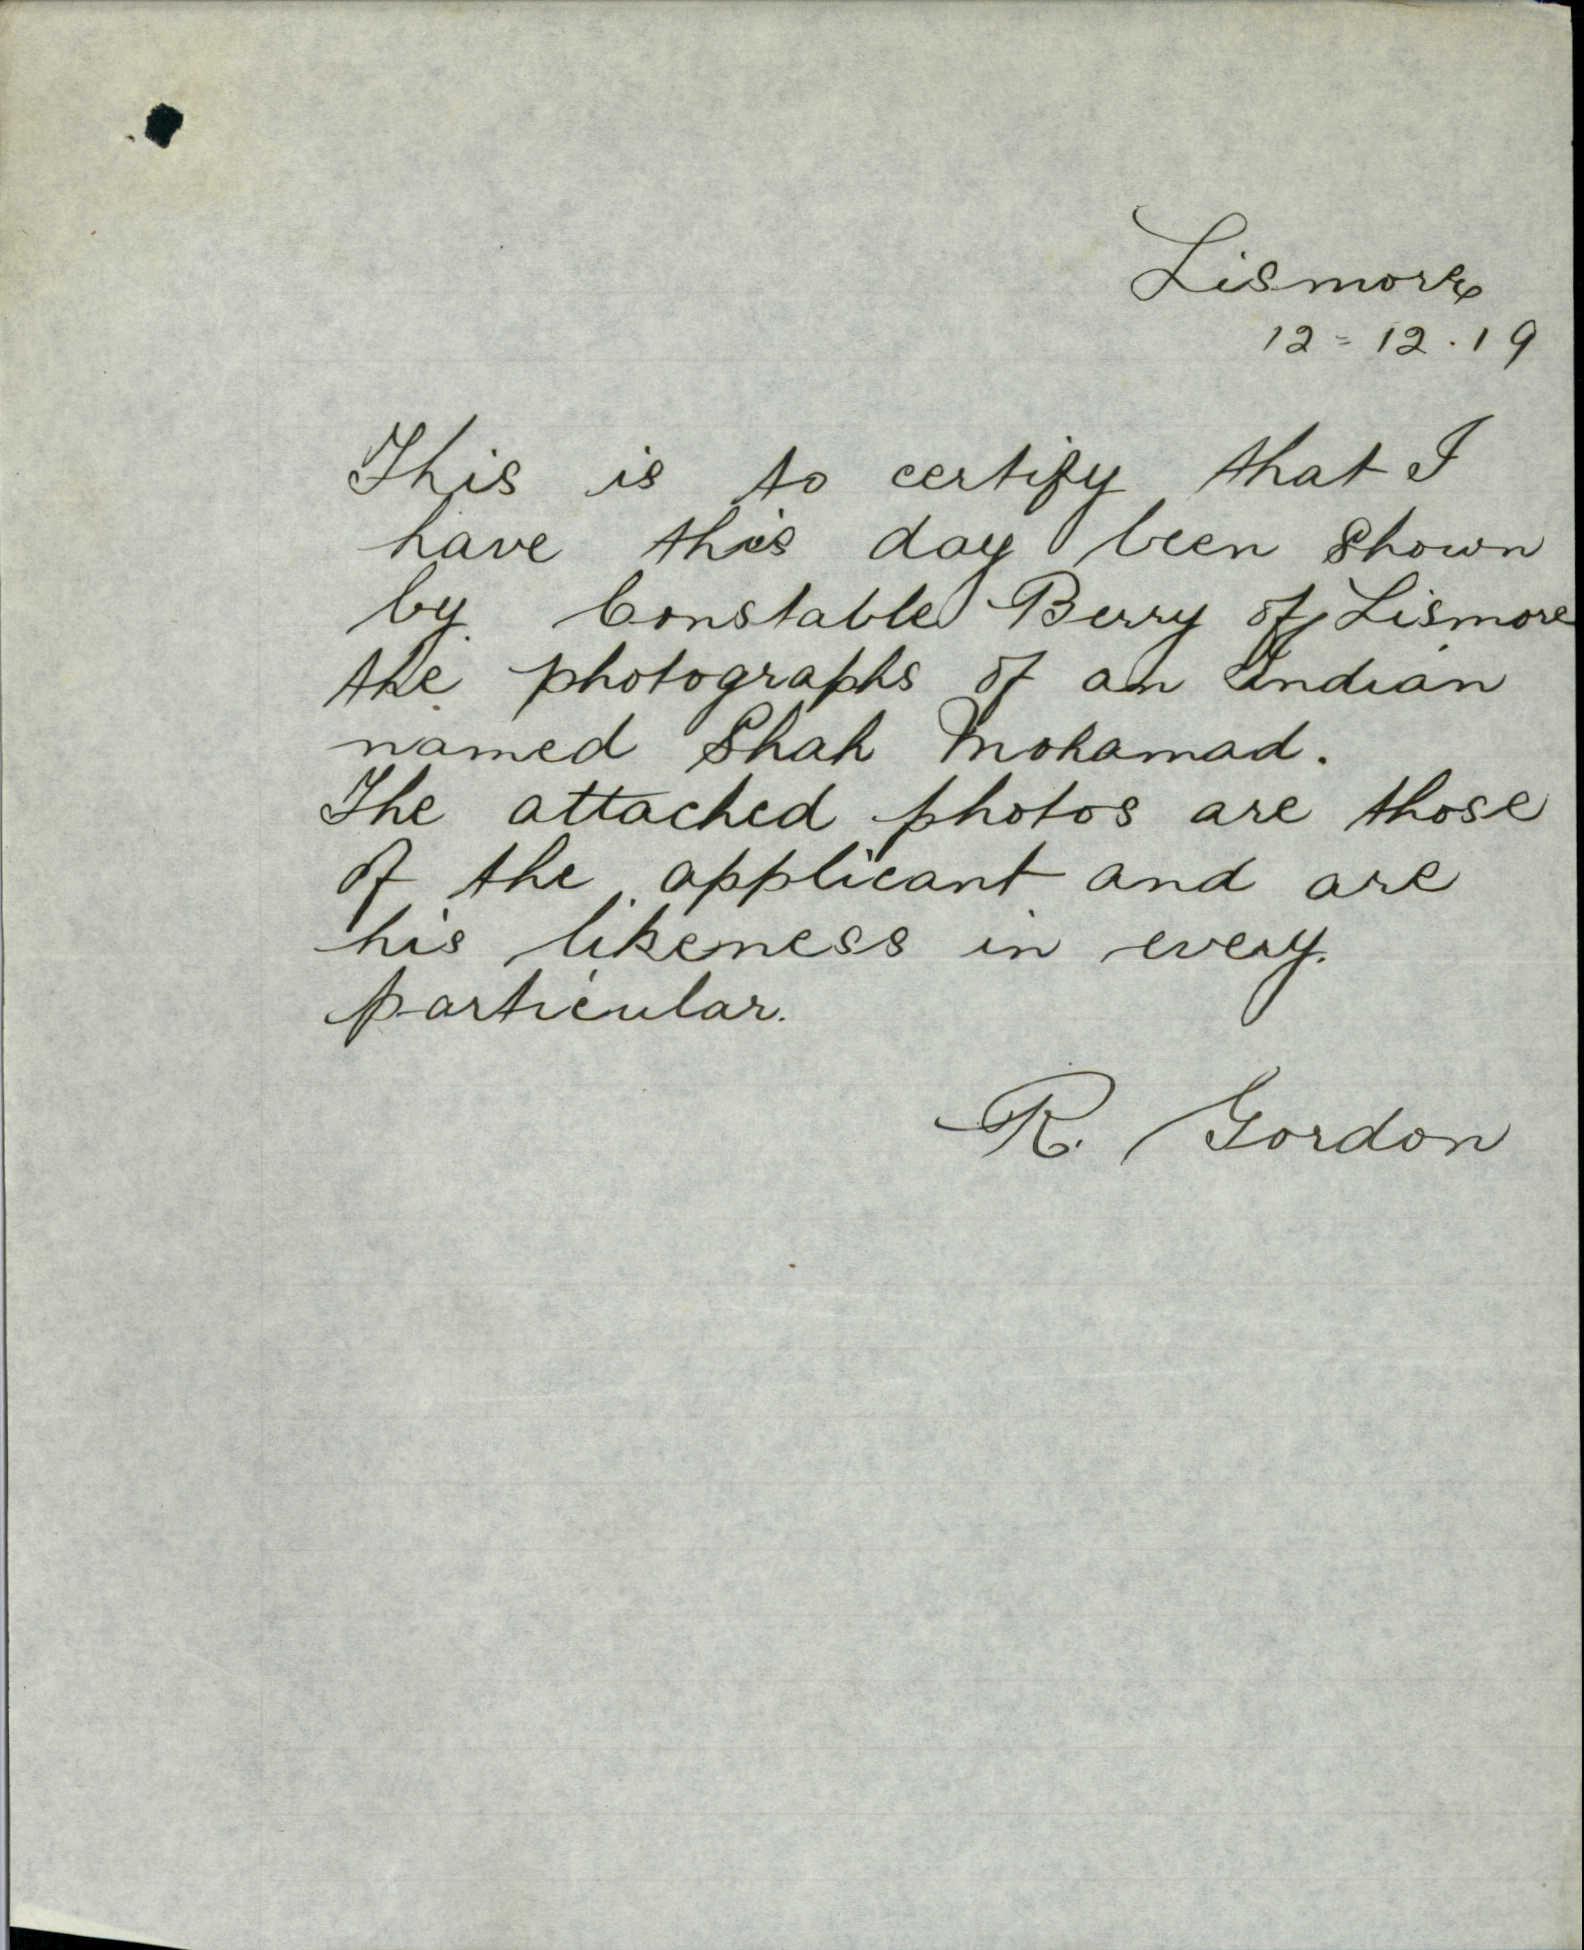 Lismore
12-12.19
This is to certify that I
have this day been shown
by Constable Berry of Lismore
the photographs of an Indian
named Shah Mohamad.
The attached photos are those
of the applicant and are
his likeness in every
particular.
R. Gordon